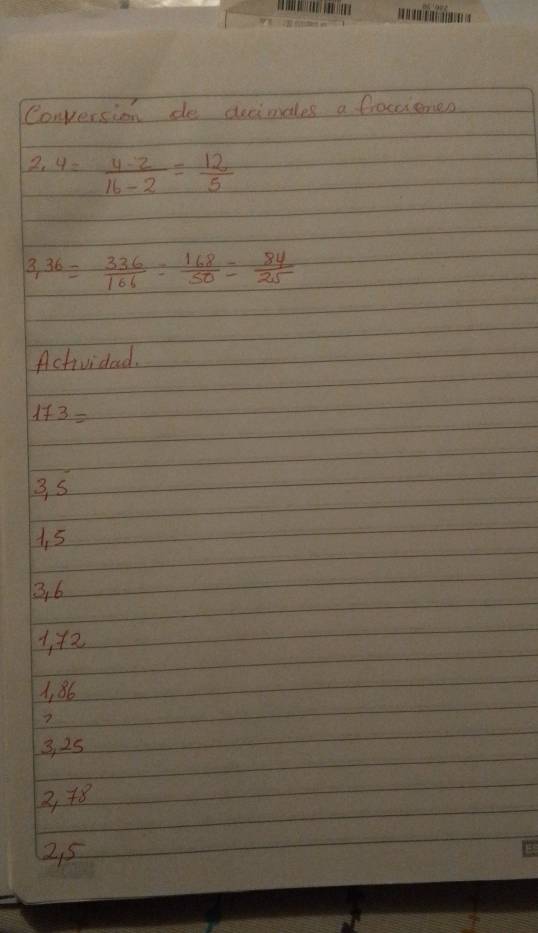 Conversión de decimales a fracciones
2,4 = 4-2/16-2 = 12/5
3,36 = 336/166 = 168/50 = 84/25
Actividad.
173 =
3,5
1,5
3,6
1,72
1,86
?
3,25
2,78
2,5